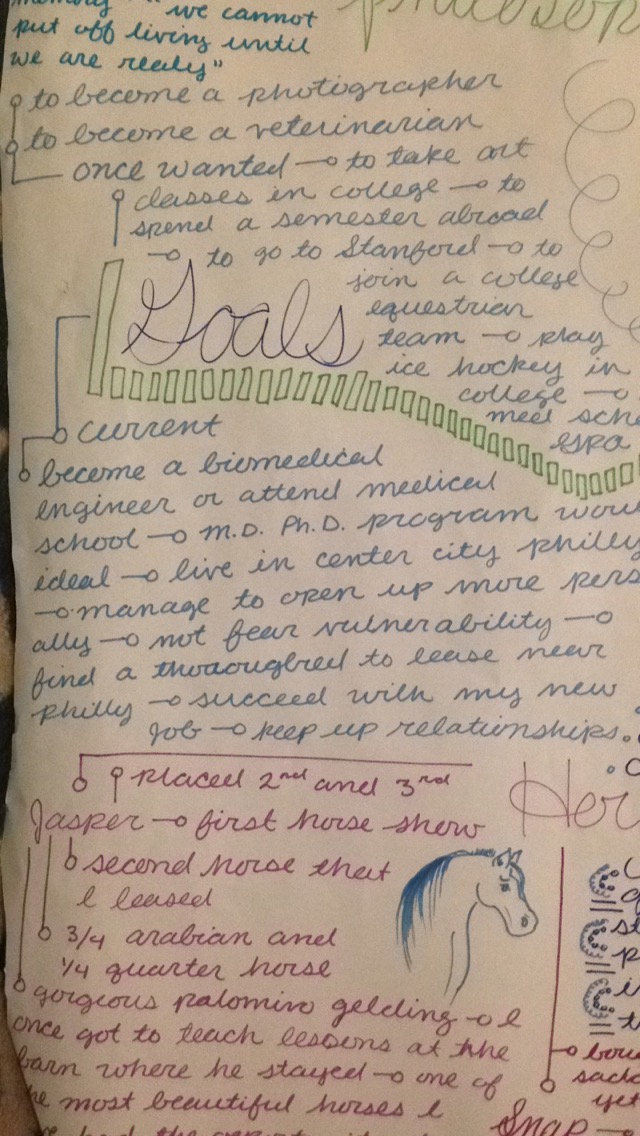 " we cannot
put off living until
we are ready"
to become a photographer
to become a veterinarian
once wanted to take art
classes in college to
spend a semester abroad
to go to Stanford to
join a college
equestrian
Goals
team play
ice hockey in
college
meet
current
become a biomedical
engineer or attend medical
school M.D. Ph.D. program
ideal live in center city philly
manage to open up more pers
ally not fear vulnerability
find a thoroughbred to lease near
philly succeed with my new
job keep up relationships.
placed 2nd and 3rd
Her
Jasper first horse show
second horse that
I leased
3/4 arabian and
1/4 quarter horse
gorgeous palomino gelding I
once got to teach lessons at the
barn where he stayed one of
most beautiful horses I
yet
Snap